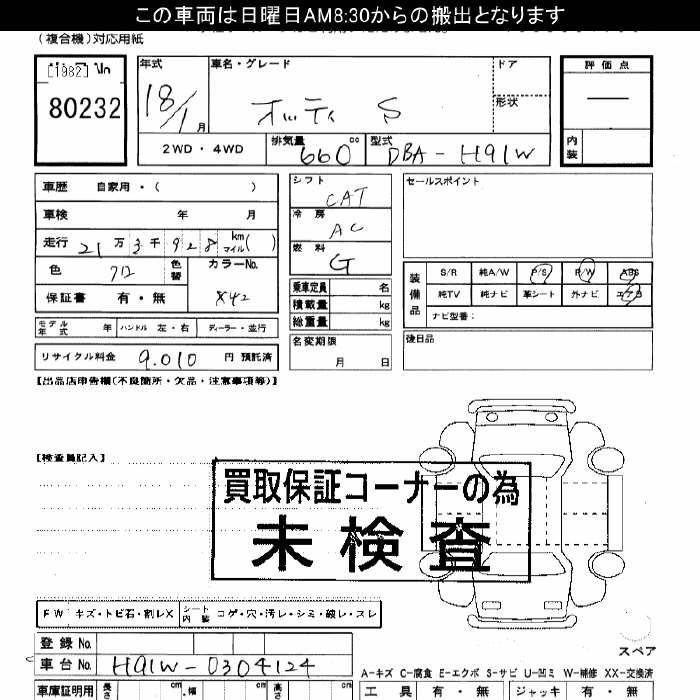 この車両は日曜日AM8:30からの搬出となります
(複合機)対応用紙
[1982]
80232
年式 18/1月
車名・グレード オッティ S
ドア
形状
評価点 —
内装
2WD・4WD
排気量 660 cc
型式 DBA-H91W
車歴 自家用・( )
車検 年 月
走行 21万3千928 km マイル( )
色 フロ
色替
カラーNo. X42
保証書 有・無
シフト CAT
冷房 AC
燃料 G
乗車定員 名
積載量 kg
総重量 kg
セールスポイント
装備品
S/R 純A/W P/S P/W ABS
純TV 純ナビ 革シート 外ナビ エアB
ナビ型番:
モデル年式 年 ハンドル 左・右 ディーラー・並行
リサイクル料金 9.010 円 預託済
名変期限 月 日
後日品
【出品店申告欄(不良箇所・欠品・注意事項等)】
【検査員記入】
買取保証コーナーの為
未検査
FW キズ・トビ石・割レX シート内装 コゲ・穴・汚レ・シミ・破レ・スレ
登録 No.
車台 No. H91W-0304124
スペア
A-キズ C-腐食 E-エクボ S-サビ U-凹ミ W-補修 XX-交換済
車庫証明用 長さ cm 幅 cm 高さ cm
工具 有・無 ジャッキ 有・無